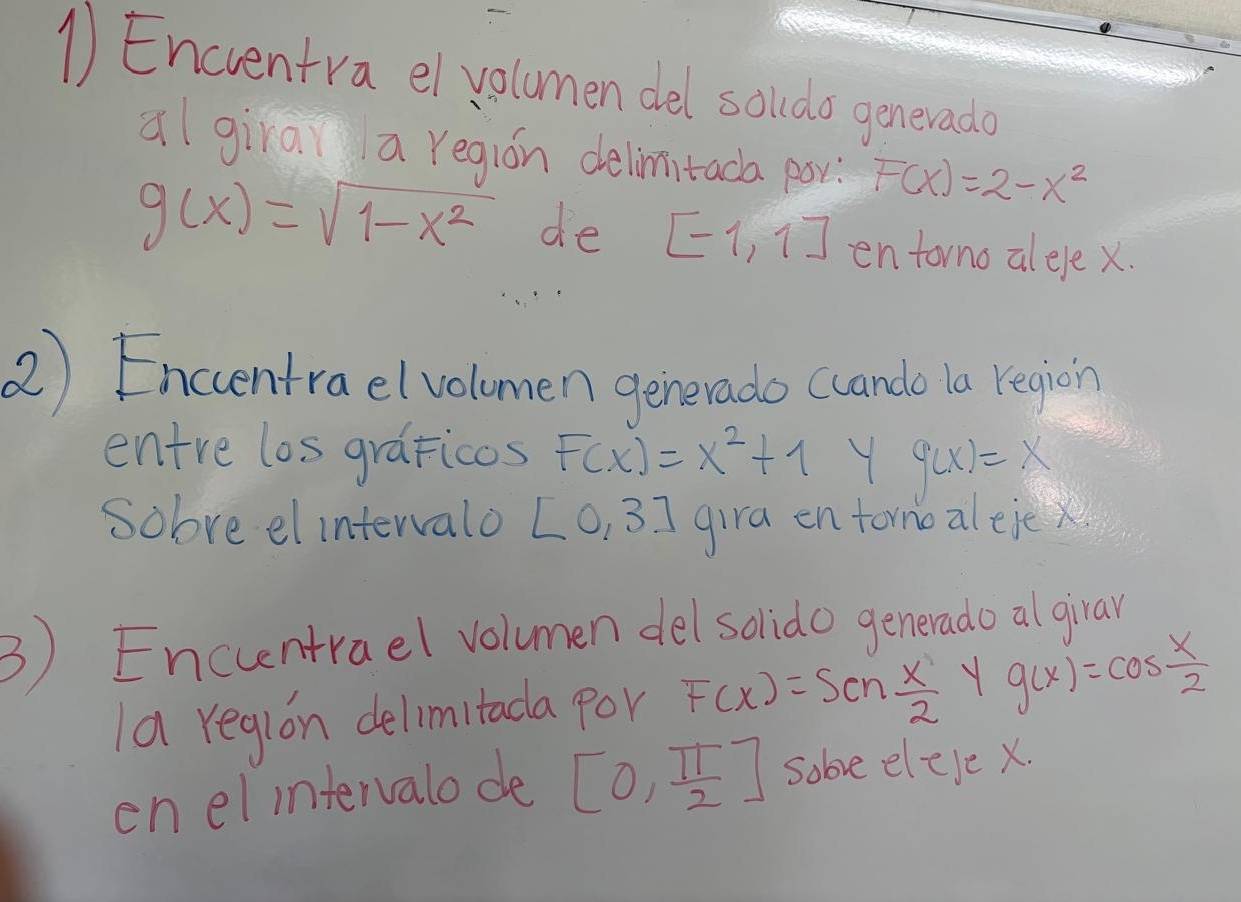 1) Encuentra el volumen del solido generado
al girar la región delimitada por: F(x)=2-x²
g(x)=√1-x² de [-1,1] en torno al eje x.
2) Encuentra el volumen generado cuando la región
entre los gráficos F(x)=x²+1 y g(x)=x
Sobre el intervalo [0,3] gira en torno al eje x.
3) Encuentra el volumen del solido generado al girar
la región delimitada por F(x)=Sen x/2 y g(x)=cos x/2
en el intervalo de [0, π/2] sobre el eje x.